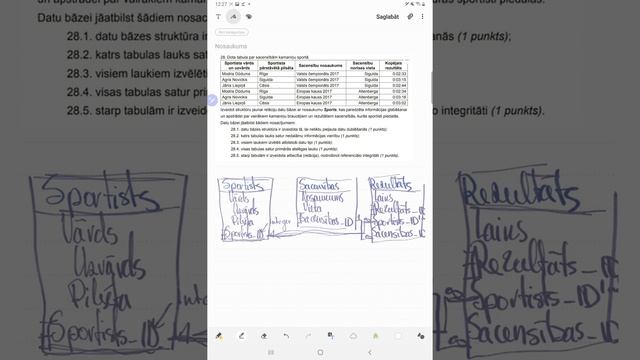 un apstrādei par vairākiem kamaniņu
Datu bāzei jāatbilst šādiem nosac
28.1. datu bāzes struktūra ir izveido
28.2. katrs tabulas lauks satur
28.3. visiem laukiem izvēlēti
28.4. visas tabulas satur prim
28.5. starp tabulām ir izveido
12:27
Saglabāt
Nosaukums
28. Dota tabula par sacensībām kamaniņu sportā.
Sportista vārds un uzvārds Sportista pārstāvētā pilsēta Sacensību nosaukums Sacensību norises vieta Kopējais rezultāts
Modris Dūdums Rīga Valsts čempionāts 2017 Sigulda 0:02:33
Agris Novicks Sigulda Valsts čempionāts 2017 Sigulda 0:03:15
Jānis Liepiņš Cēsis Valsts čempionāts 2017 Sigulda 0:02:44
Modris Dūdums Rīga Eiropas kauss 2017 Altenberga 0:02:34
Agris Novicks Sigulda Eiropas kauss 2017 Altenberga 0:03:16
Jānis Liepiņš Cēsis Eiropas kauss 2017 Altenberga 0:03:02
Izveidot struktūru jaunai relāciju datu bāzei ar nosaukumu Sports, kas paredzēta informācijas glabāšanai
un apstrādei par vairākiem kamaniņu braucējiem un rezultātiem sacensībās, kurās sportisti piedalās.
Datu bāzei jāatbilst šādiem nosacījumiem:
28.1. datu bāzes struktūra ir izveidota tā, lai netiktu pieļauta datu dublēšanās (1 punkts);
28.2. katrs tabulas lauks satur nedalāmu informācijas vienību (1 punkts);
28.3. visiem laukiem izvēlēti atbilstoši datu tipi (1 punkts);
28.4. visas tabulas satur primārās atslēgas lauku (1 punkts);
28.5. starp tabulām ir izveidota attiecība (relācija), nodrošinot referenciālo integritāti (1 punkts).
Sportists
Vārds
Uzvārds
Pilsēta
Sportists_ID
integer
Sacensības
Nosaukums
Vieta
Sacensības_ID
Rezultāts
Laiks
Rezultāts_ID
Sportists_ID
Sacensības_ID
anās (1 punkts);
unkts);
integritāti (1 punkts).
Sportists
Vārds
Uzvārds
Pilsēta
Sportists_ID
Rezultāts
Laiks
Rezultāts_ID
Sportists_ID
Sacensības_ID